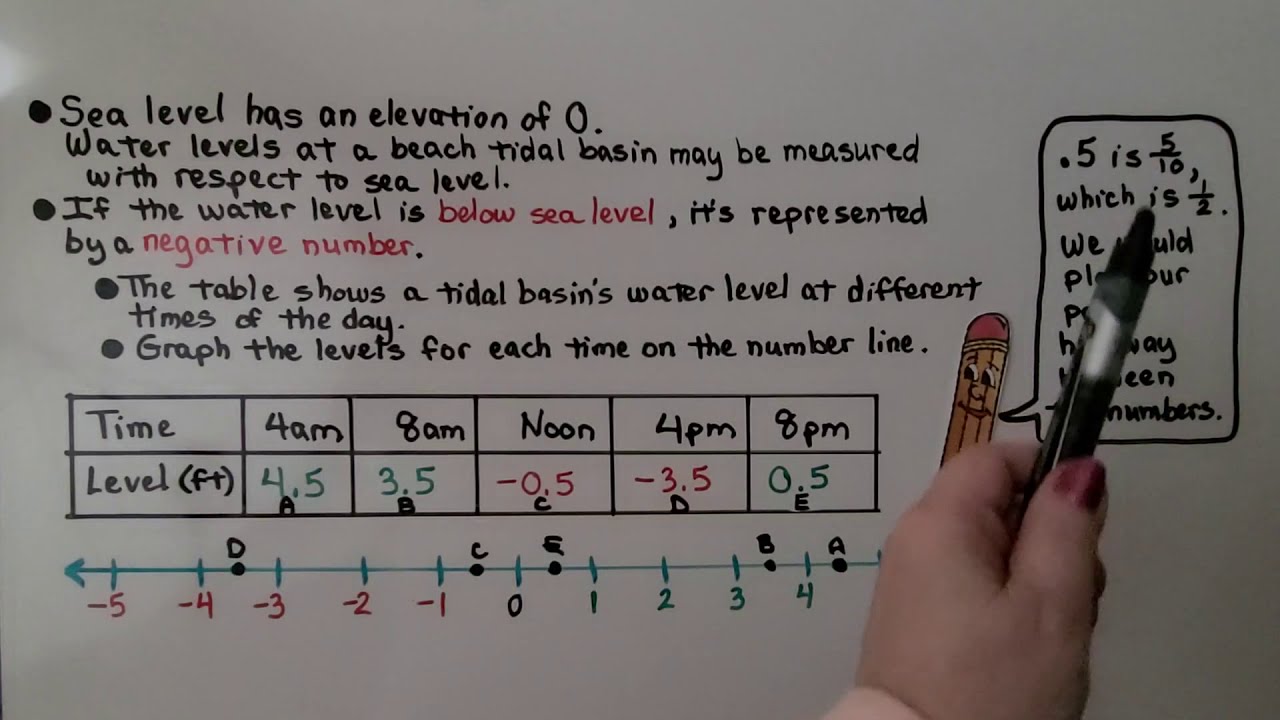 Sea level has an elevation of 0.
Water levels at a beach tidal basin may be measured
with respect to sea level.
If the water level is below sea level, it's represented
by a negative number.
The table shows a tidal basin's water level at different
times of the day.
Graph the levels for each time on the number line.
Time 4am 8am Noon 4pm 8pm
Level (ft) 4.5 3.5 -0.5 -3.5 0.5
A B C D E
D C E B A
-5 -4 -3 -2 -1 0 1 2 3 4
.5 is 5/10,
which is 1/2.
We
our
numbers.